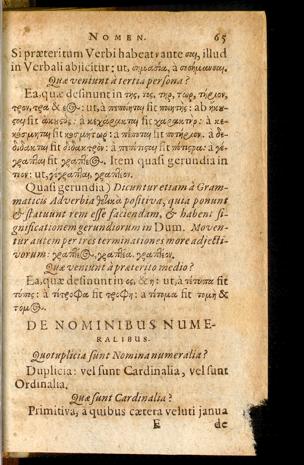 NOMEN. 65
Si præteritum Verbi habeat σ ante σαι, illud
in Verbali abjicitur; ut, σημασία, à σεσήμανσαι.
Quæ veniunt à tertia persona?
Ea, quæ desinunt in της, τις, τηρ, τωρ, τηριον,
τρον, τρα & εος: ut, à πεποίηται fit ποιητής: ab
fit à κεχάρακται fit χαρακτήρ: à κε-
κόσμηται fit κοσμήτωρ: à πέποται fit ποτήριον: à δε-
δίδακται fit δίδακτρον: à fit à γέ-
γραπται fit γραπτέος. Item quasi gerundia in
τεον: ut, γέγραπται, γραπτέον.
Quasi gerundia) Dicuntur etiam à Gram-
maticis Adverbia θετικὰ positiva, quia ponunt
& statuunt rem esse faciendam, & habent si-
gnificationem gerundiorum in Dum. Moven-
tur autem per tres terminationes more adjecti-
vorum: γραπτέος, γραπτέα, γραπτέον.
Quæ veniunt à præterito medio?
Ea, quæ desinunt in ος, & η: ut, à τέτυπα fit
τύπος: à τέτροφα fit τροφή: à τέτομα fit τομὴ &
τόμος.
DE NOMINIBUS NUME-
RALIBUS.
Quotuplicia sunt Nomina numeralia?
Duplicia: vel sunt Cardinalia, vel sunt
Ordinalia.
Quæ sunt Cardinalia?
Primitiva, à quibus cætera veluti janua
E de